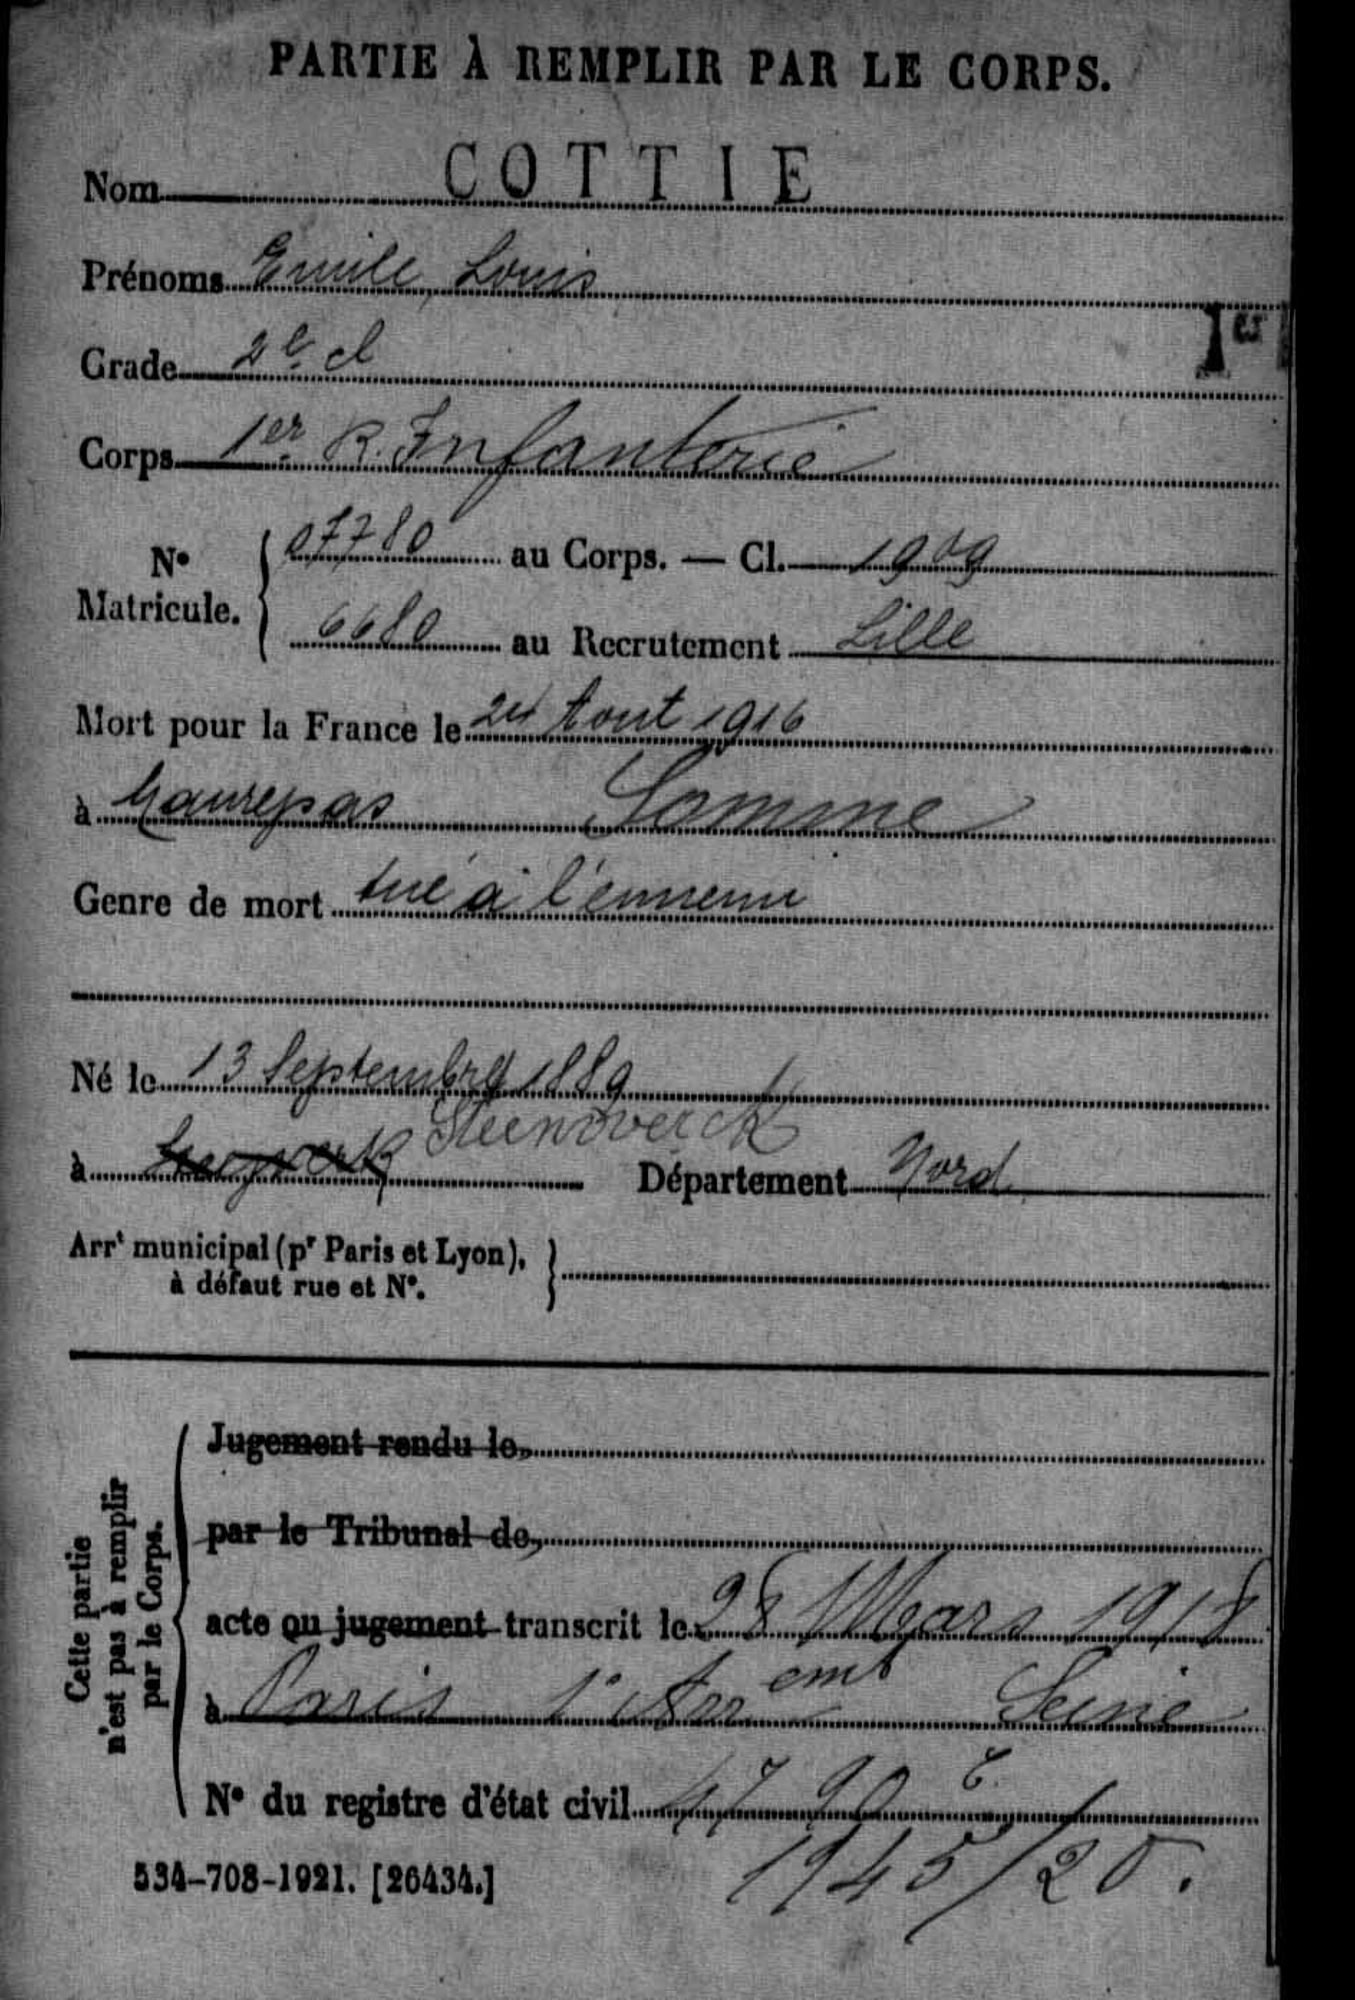 PARTIE À REMPLIR PAR LE CORPS.
Nom COTTIE
Prénoms Emile, Louis
Grade 2e cl
1er
Corps 1er R. Infanterie
No Matricule. { 07780 au Corps. — Cl. 1909
6680 au Recrutement Lille
Mort pour la France le 24 Aout 1916
à Maurepas Somme
Genre de mort tué à l'ennemi
Né le 13 Septembre 1889
Steenwerck
à Département Nord
Arrt municipal (pr Paris et Lyon), }
à défaut rue et No.
Cette partie
n'est pas à remplir
par le Corps.
Jugement rendu le
par le Tribunal de
acte ou jugement transcrit le 28 Mars 1918
à Paris 1o Arremt Seine
No du registre d'état civil
534-708-1921. [26434.]
1945/20.